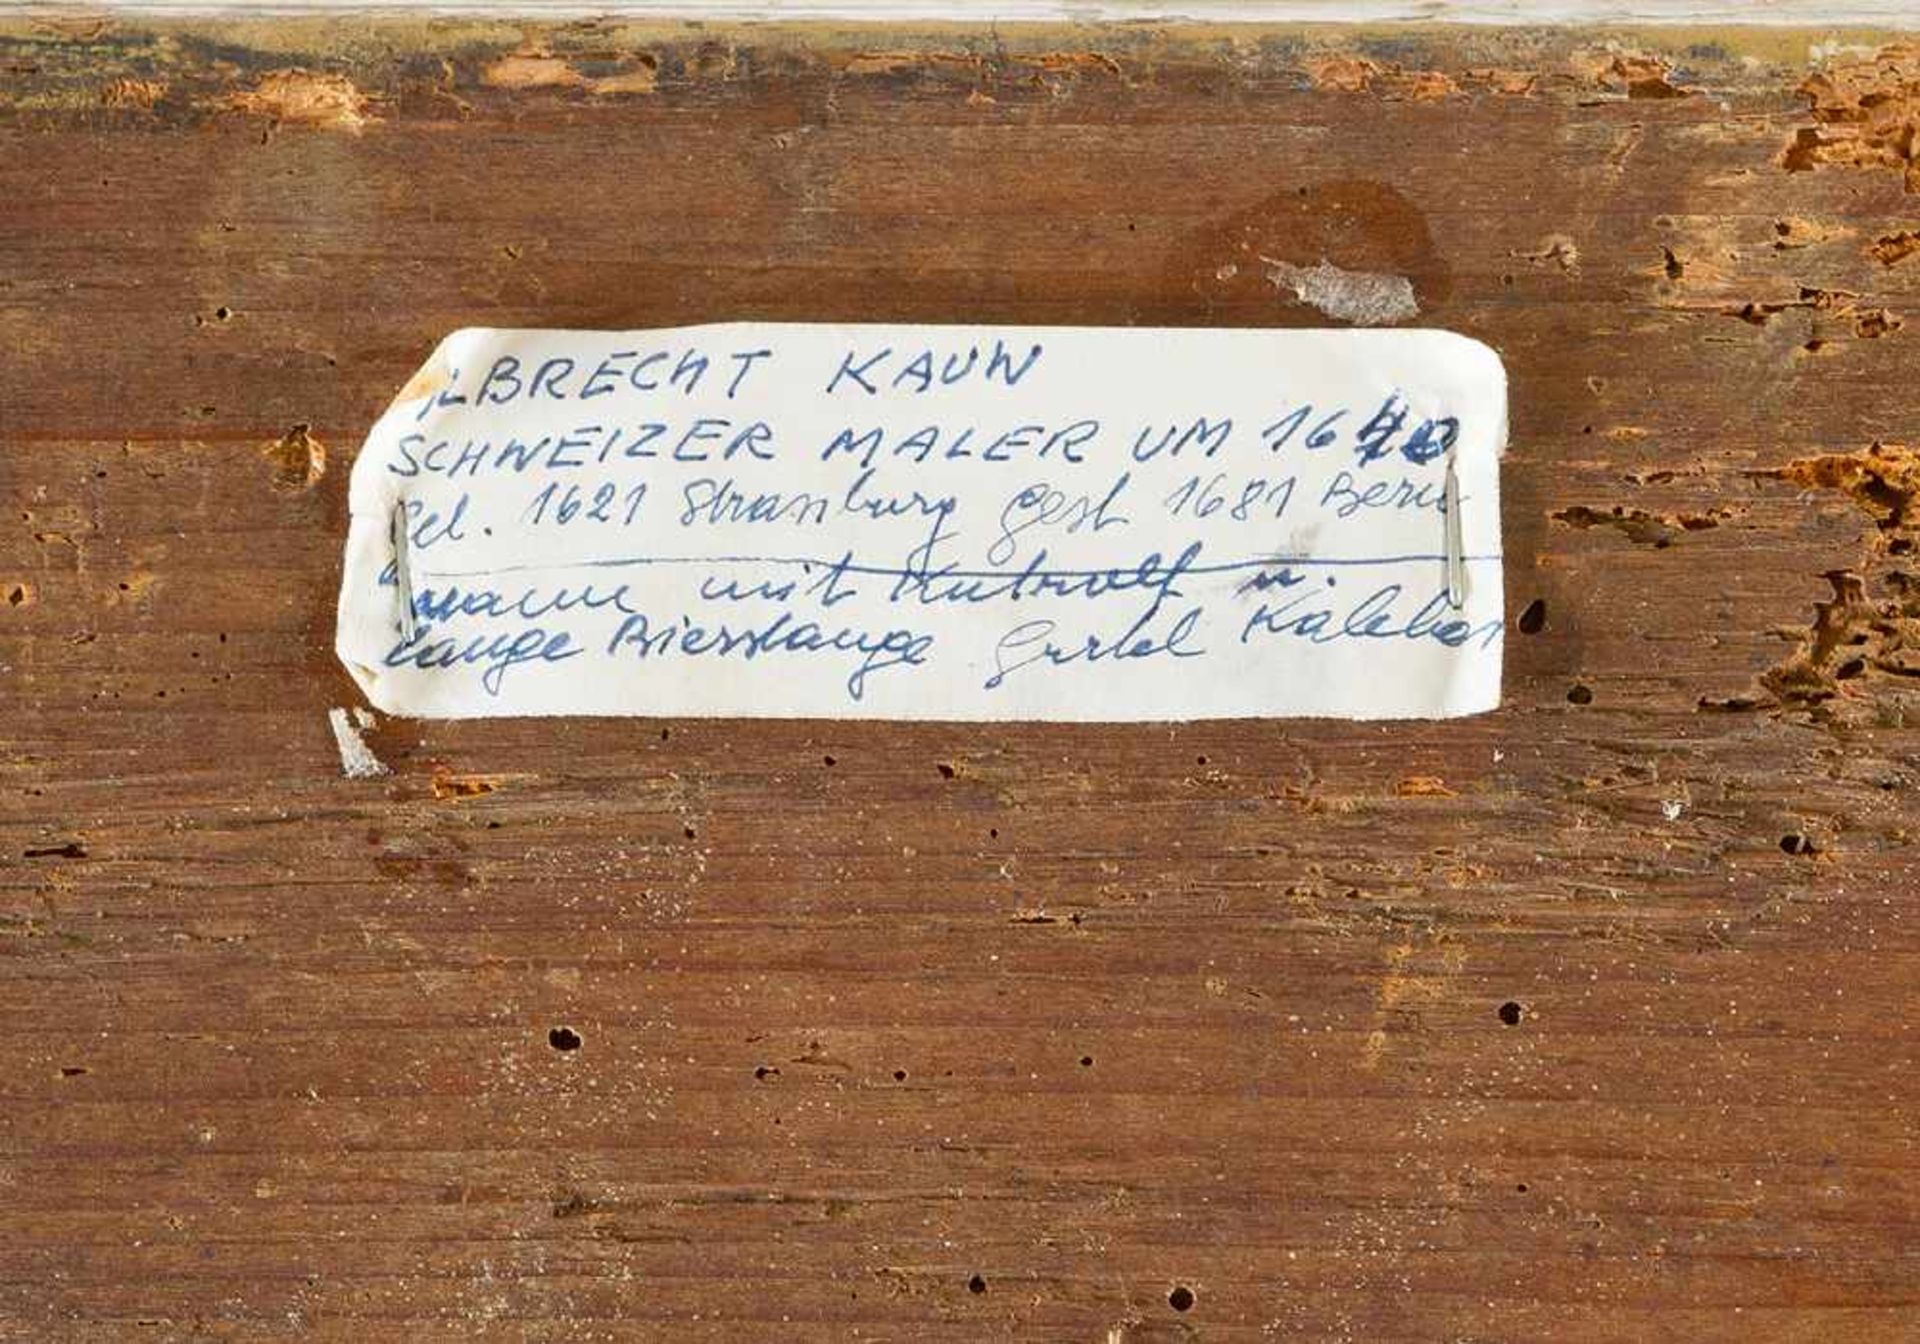 ALBRECHT KAUW
SCHWEIZER MALER UM 1640
Gel. 1621 Strassburg gest 1681 Bern
mann mit Kutrolf u.
lange Bierstange Gurtel